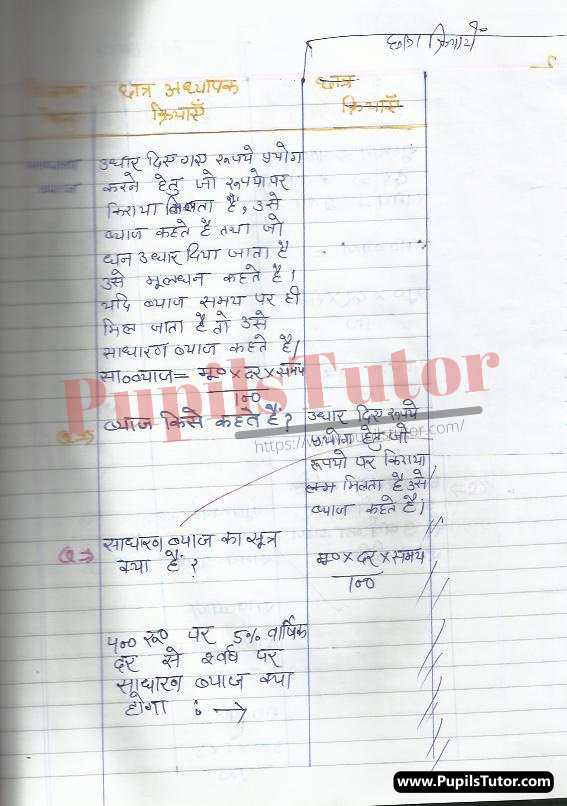 छात्र क्रियायें
छात्र अध्यापक
क्रियाएँ
छात्र
क्रियाएँ
उधार दिए गए रूपये प्रयोग
करने हेतु जो रूपयो पर
किराया मिलता है, उसे
ब्याज कहते है तथा जो
धन उधार दिया जाता है
उसे मूलधन कहते है।
यदि ब्याज समय पर ही
मिल जाता है तो उसे
साधारण ब्याज कहते है।
सा०ब्याज = मू० × दर × समय
100
Q ⇒ ब्याज किसे कहते हैं?
उधार दिए रूपये
प्रयोग हेतु जो
रूपयो पर किराया
मिलता है उसे
ब्याज कहते है।
Q ⇒ साधारण ब्याज का सूत्र
क्या है?
मू० × दर × समय
100
रू० पर 5% वार्षिक
दर से वर्ष पर
साधारण ब्याज क्या
होगा :→
PupilsTutor
https://www.pupilstutor.com/
www.PupilsTutor.com